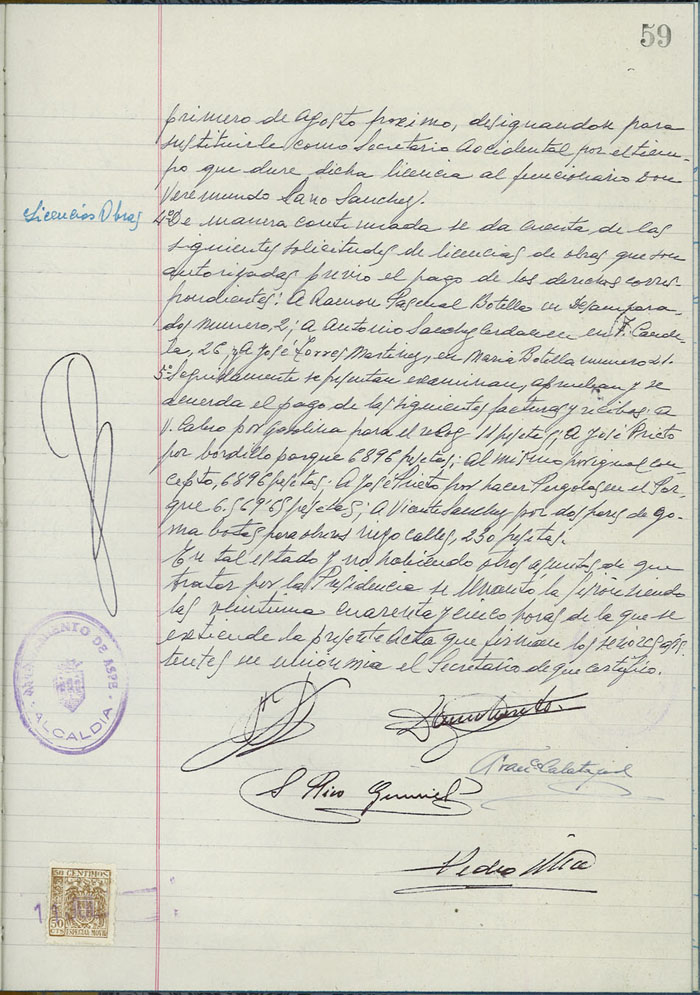 59
primero de Agosto proximo, designandose para
sustituirle como Secretario Accidental por el tiem-
po que dure, dicha licencia al funcionario Don
Veremundo Cano Sanchez.
Licencias Obras
4º De manera continuada se da cuenta de las
siguientes solicitudes de licencias de obras que son
autorizadas previo el pago de los derechos corres-
pondientes: A Ramon Pascual Botella en Desampara-
dos numero, 2; A Antonio Sanchez Cerdan en
la, 26, y A José Torres Martinez, en Maria Botella numero 21.
5º Seguidamente se presentan examinan, aprueban y se
acuerda el pago de las siguientes facturas y recibos: A
V. Calvo por gasolina para el reloj 11 pesetas; A José Prieto
por bordillo parque 6896 pesetas; Al mismo por igual con-
cepto, 6896 pesetas. A José Prieto por hacer Pergolas en el Par-
que 6.569'65 pesetas; A Vicente Sanchez por dos pares de go-
ma botas para obreros riego calles, 230 pesetas.
En tal estado y no habiendo otros asuntos de que
tratar por la Presidencia se levantó la sesion siendo
las veintiuna cuarenta y cinco horas de la que se
extiende la presente Acta que firman los señores asis-
tentes en union mia el Secretario de que certifico.
AYUNTAMIENTO DE ASPE
ALCALDIA
Franco Calatayud
S Rico
Pedro
50 CENTIMOS
50
CTS
ESPECIAL MOVIL